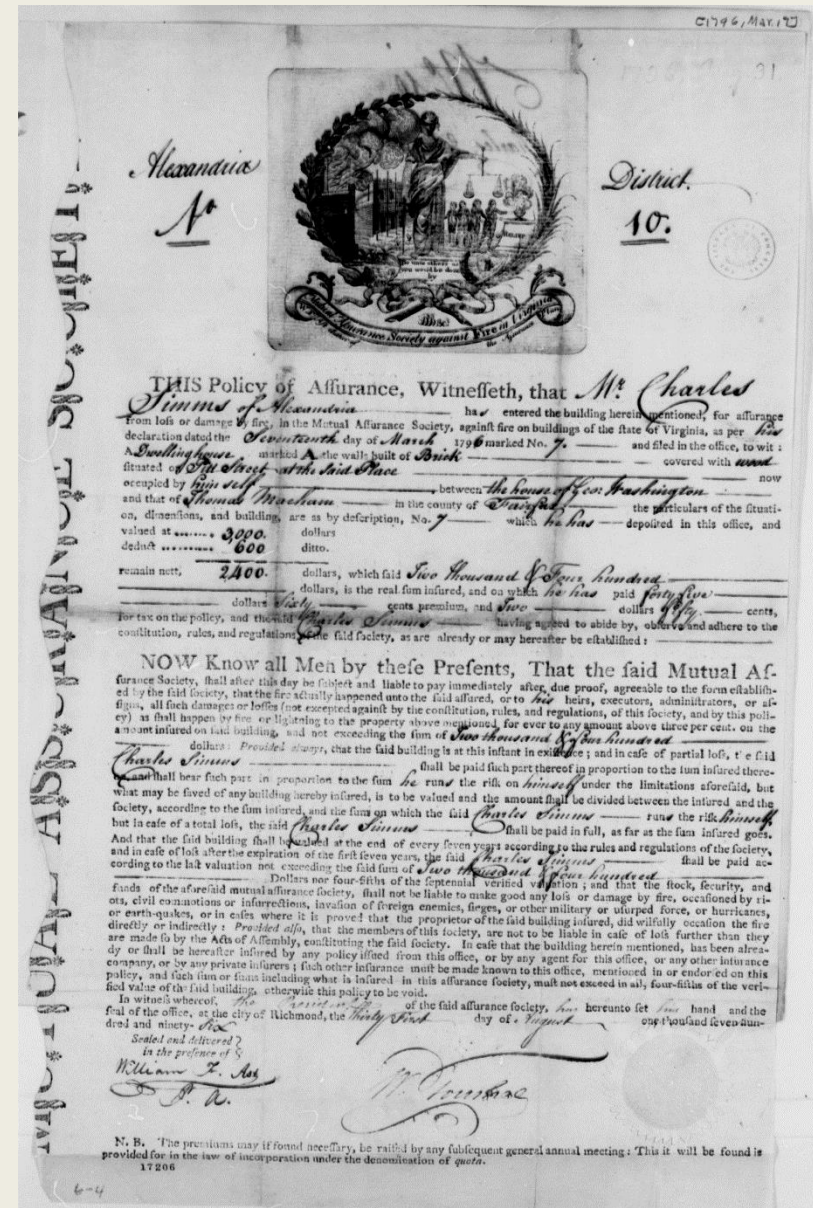 [1796, Mar. 17]
31
Alexandria
District.
No
10.
Mutual Assurance Society against Fire in Virginia
MUTUAL ASSURANCE SOCIETY
THIS Policy of Aſſurance, Witneſſeth, that Mr Charles
Simms of Alexandria has entered the building herein mentioned, for aſſurance
from loſs or damage by fire, in the Mutual Aſſurance Society, againſt fire on buildings of the ſtate of Virginia, as per his
declaration dated the Seventeenth day of March 1796 marked No. 7. and filed in the office, to wit:
A Dwelling house marked A the walls built of Brick covered with wood
ſituated on Street at the said Place now
occupied by himself between the house of Geo: Washington
and that of Thomas in the county of Fairfax the particulars of the ſituati-
on, dimenſions, and building, are as by deſcription, No. 7 which he has depoſited in this office, and
valued at 3,000. dollars
deduct 600 ditto.
remain nett, 2,400. dollars, which ſaid Two thousand & Four hundred
dollars, is the real ſum inſured, and on which he has paid forty five
dollars Sixty cents premium, and Two dollars fifty cents,
for tax on the policy, and the ſaid Charles Simms having agreed to abide by, obſerve and adhere to the
conſtitution, rules, and regulations of the ſaid ſociety, as are already or may hereafter be eſtabliſhed:
NOW Know all Men by theſe Preſents, That the ſaid Mutual Aſ-
ſurance Society, ſhall after this day be ſubject and liable to pay immediately after, due proof, agreeable to the form eſtabliſh-
ed by the ſaid ſociety, that the fire actually happened unto the ſaid aſſured, or to his heirs, executors, adminiſtrators, or aſ-
ſigns, all ſuch damages or loſſes (not excepted againſt by the conſtitution, rules, and regulations, of this ſociety, and by this poli-
cy) as ſhall happen by fire or lightning to the property above mentioned, for ever to any amount above three per cent. on the
amount inſured on ſaid building, and not exceeding the ſum of Two thousand & four hundred
dollars: Provided always, that the ſaid building is at this inſtant in exiſtence; and in caſe of partial loſs, the ſaid
Charles Simms ſhall be paid ſuch part thereof in proportion to the ſum inſured there-
and ſhall bear ſuch part in proportion to the ſum he runs the riſk on himself under the limitations aforeſaid, but
what may be ſaved of any building hereby inſured, is to be valued and the amount ſhall be divided between the inſured and the
ſociety, according to the ſum inſured, and the ſum on which the ſaid Charles Simms runs the riſk himself
but in caſe of a total loſs, the ſaid Charles Simms ſhall be paid in full, as far as the ſum inſured goes.
And that the ſaid building ſhall be valued at the end of every ſeven years according to the rules and regulations of the ſociety,
and in caſe of loſs after the expiration of the firſt ſeven years, the ſaid Charles Simms ſhall be paid ac-
cording to the laſt valuation not exceeding the ſaid ſum of Two thousand & four hundred
Dollars nor four-fifths of the ſeptennial verified valuation; and that the ſtock, ſecurity, and
funds of the aforeſaid mutual aſſurance ſociety, ſhall not be liable to make good any loſs or damage by fire, occaſioned by ri-
ots, civil commotions or inſurrections, invaſion of foreign enemies, ſieges, or other military or uſurped force, or hurricanes,
or earth-quakes, or in caſes where it is proved that the proprietor of the ſaid building inſured, did wilfully occaſion the fire
directly or indirectly: Provided alſo, that the members of this ſociety, are not to be liable in caſe of loſs further than they
are made ſo by the Acts of Aſſembly, conſtituting the ſaid ſociety. In caſe that the building herein mentioned, has been alrea-
dy or ſhall be hereafter inſured by any policy iſſued from this office, or by any agent for this office, or any other inſurance
company, or by any private inſurers; ſuch other inſurance muſt be made known to this office, mentioned in or endorſed on this
policy, and ſuch ſum or ſums including what is inſured in this aſſurance ſociety, muſt not exceed in all, four-fifths of the veri-
fied value of the ſaid building, otherwiſe this policy to be void.
In witneſs whereof, the President of the ſaid aſſurance ſociety, has hereunto ſet his hand and the
ſeal of the office, at the city of Richmond, the Thirty First day of August one thouſand ſeven hun-
dred and ninety-Six
Sealed and delivered
in the preſence of
William F. Ast
P. A.
N. B. The premiums may if found neceſſary, be raiſed by any ſubſequent general annual meeting: This it will be found is
provided for in the law of incorporation under the denomination of quota.
17206
6-4